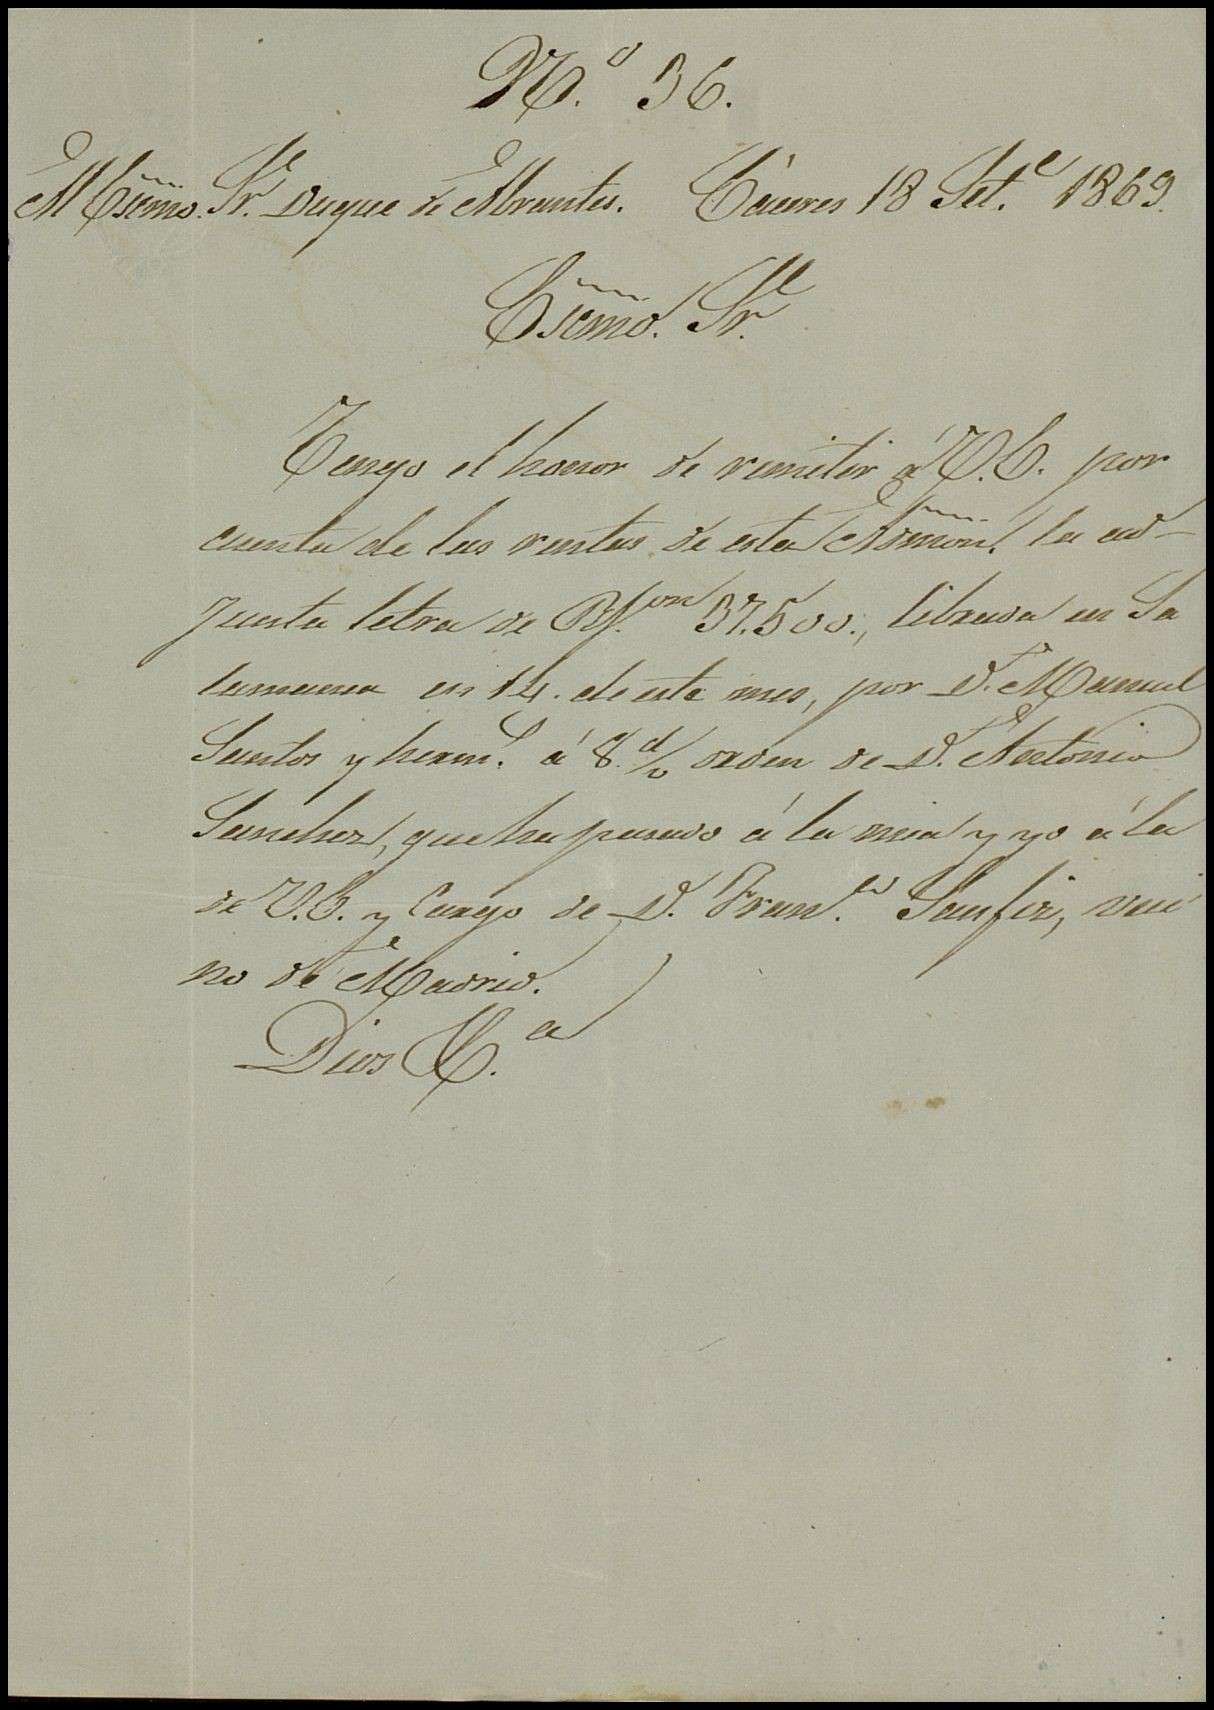 N.º 36.
Al Escmo. Sr. Duque de Abrantes. Cáceres 18 Set.e 1869.
Escmo. Sr.
Tengo el honor de remitir á V.E. por
cuenta de las rentas de esta Admon. la ad-
junta letra de Rs.von 37.500., librada en Sa
lamanca en 14. de este mes, por D. Manuel
Santos y herm.º á 8. d/v orden de D. Antonio
Sanchez, que ha pasado á la mia y yo á la
de V.E. y cargo de D. Fran.co Sanfiz, veci
no de Madrid.
Dios &.a